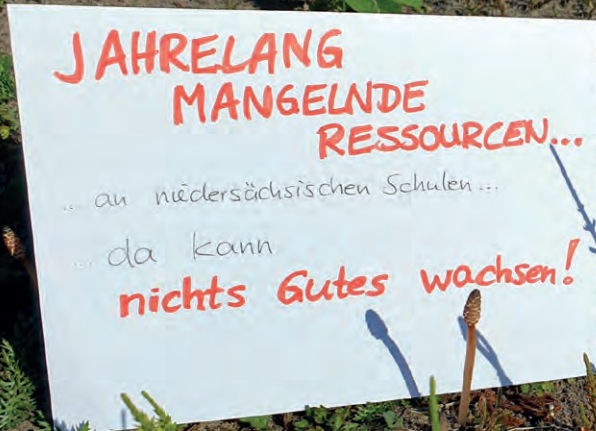 JAHRELANG
MANGELNDE
RESSOURCEN...
... an niedersächsischen Schulen...
... da kann
nichts Gutes wachsen!